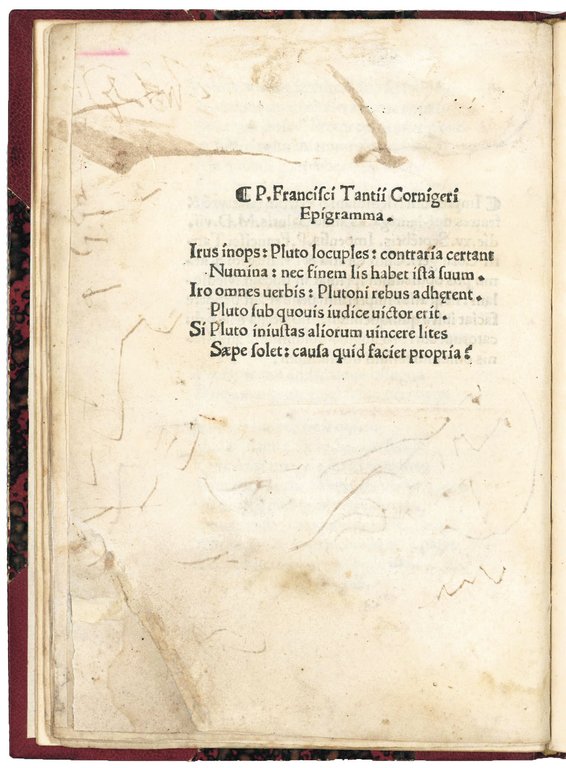 ¶ P. Francisci Tantii Cornigeri
Epigramma.
Irus inops: Pluto locuples: contraria certant
Numina: nec finem lis habet ista suum.
Iro omnes uerbis: Plutoni rebus adhęrent.
Pluto sub quouis iudice uictor erit.
Si Pluto iniustas aliorum uincere lites
Sæpe solet: causa quid faciet propria?